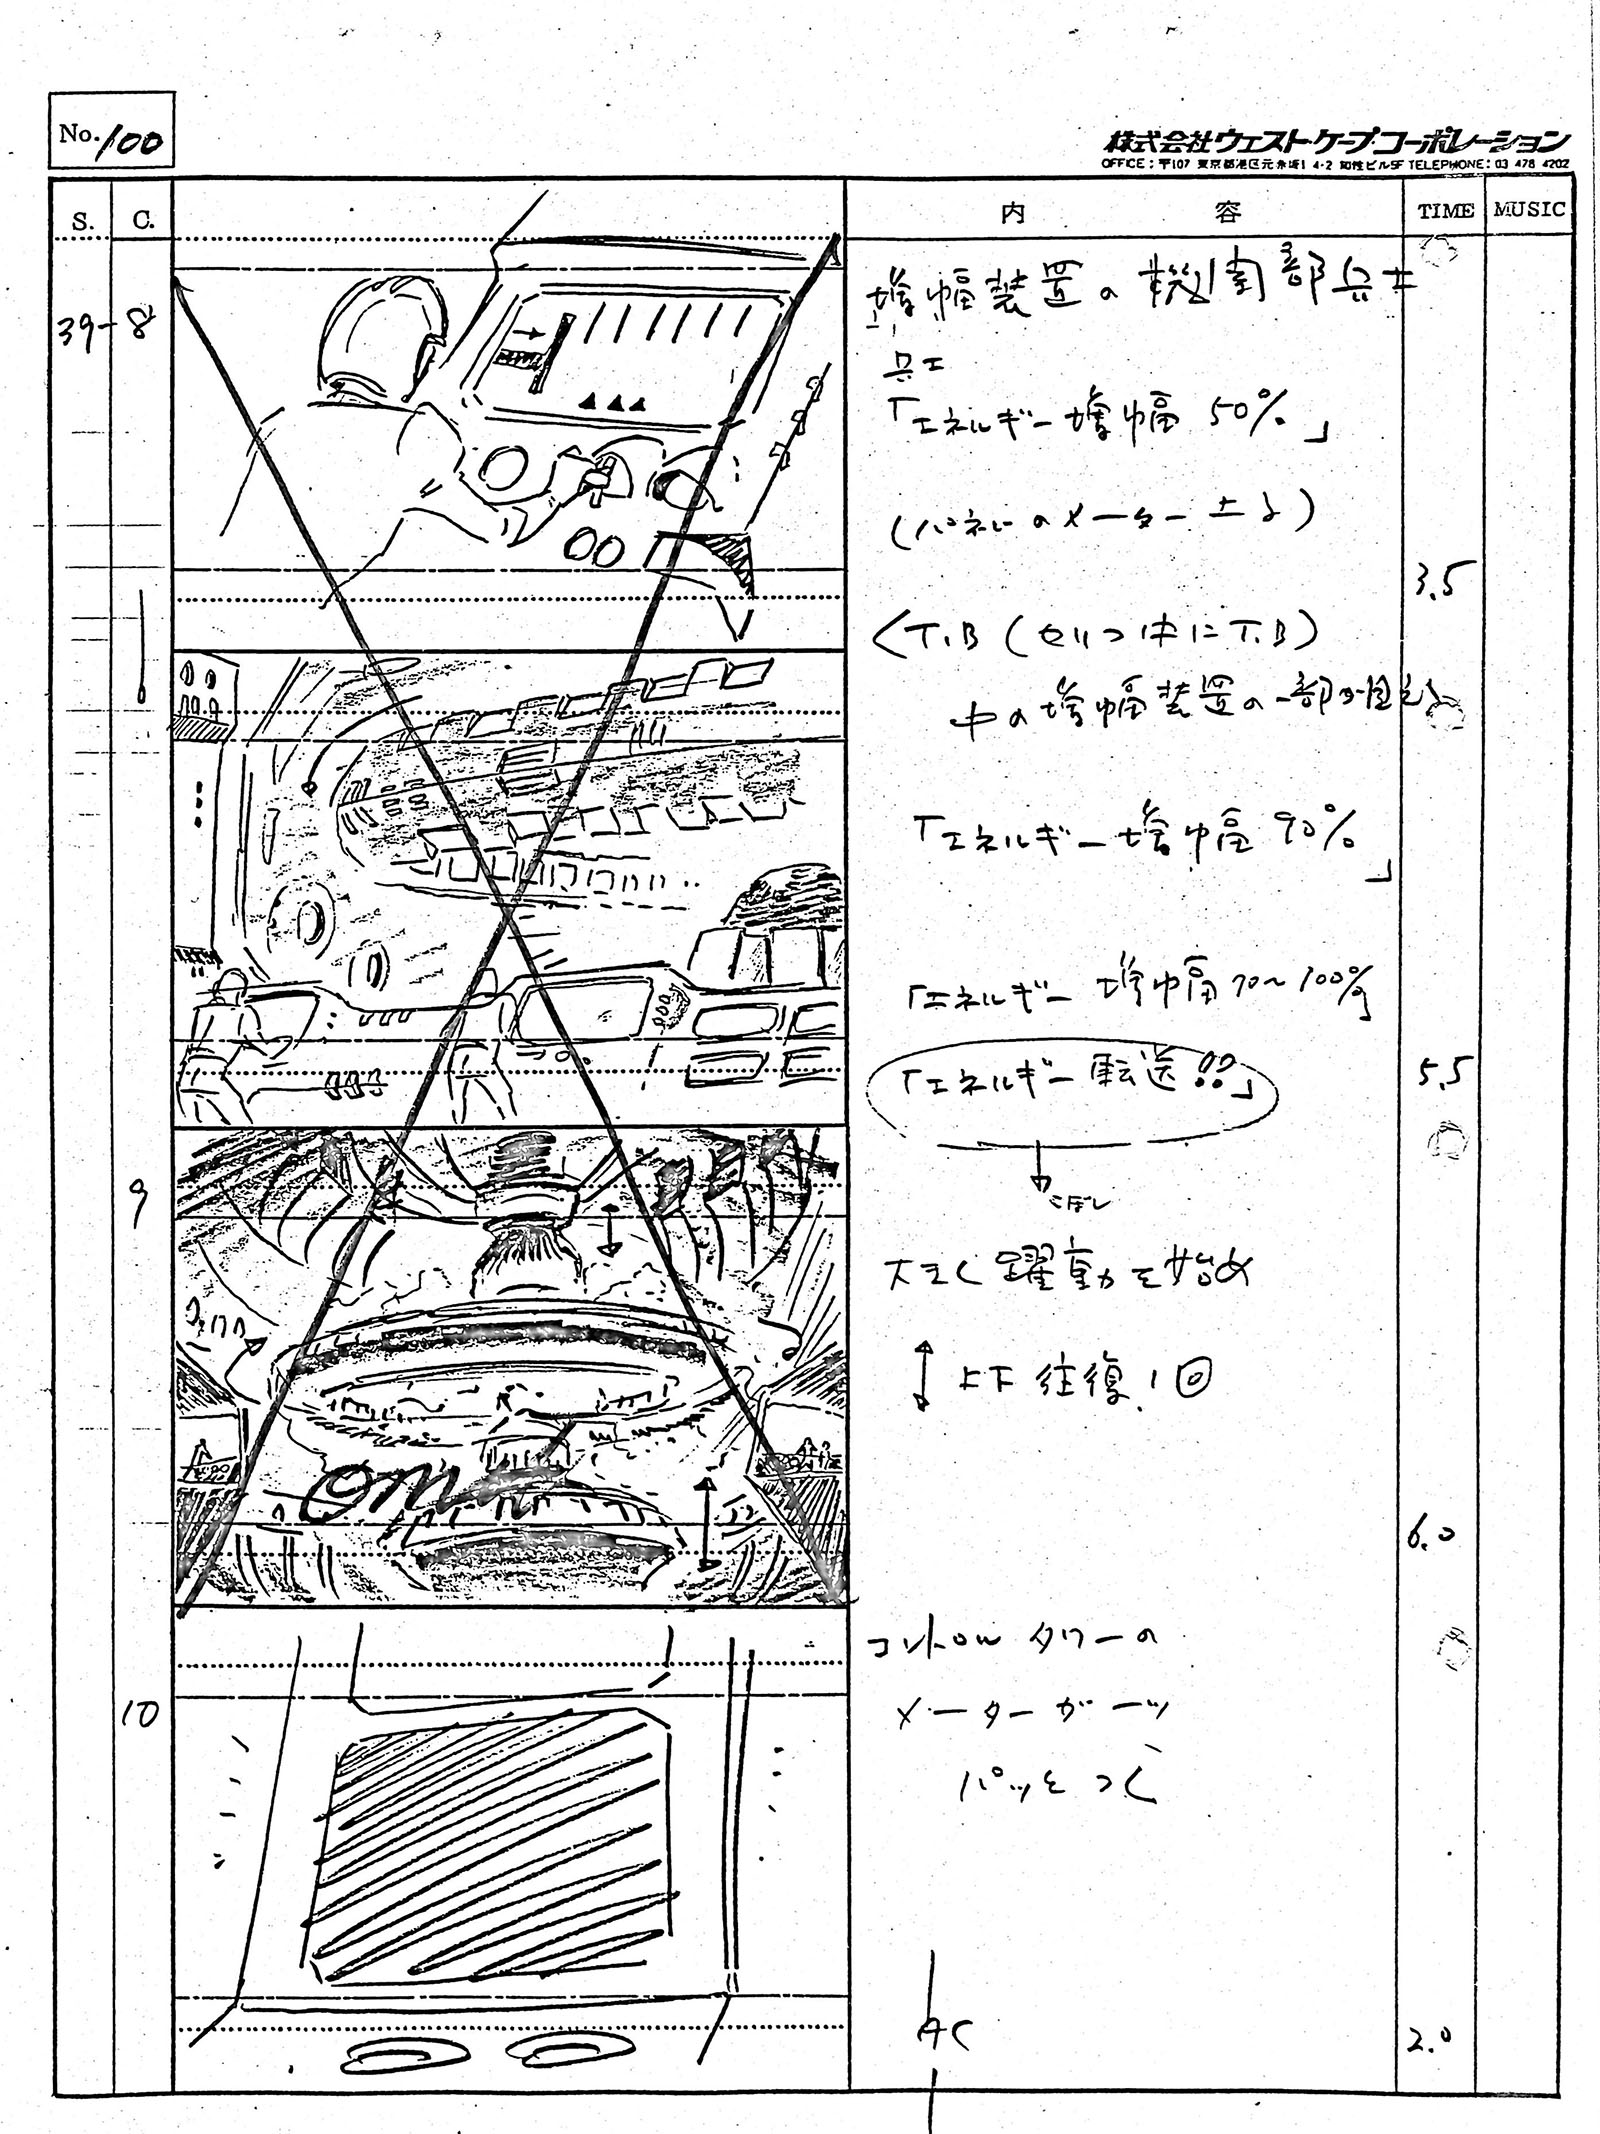 No. 100
株式会社ウエスト・ケープ・コーポレーション
OFFICE:〒107 東京都港区元赤坂1 4-2 TELEPHONE:03 478 4202
S. C. 内 容 TIME MUSIC
39-8
増幅装置の機関部兵士
兵士
「エネルギー増幅 50%」
(パネルのメーター上る)
3.5
<T.B (セリフ中にT.B)
中の増幅装置の一部が見える
「エネルギー増幅 90%」
「エネルギー増幅 90〜100%」
「エネルギー転送!!」
5.5
こぼし
9
大きく躍動を始め
上下往復1回
om
6.0
10
コントロールタワーの
メーターが一ツ
パッとつく
AC
2.0